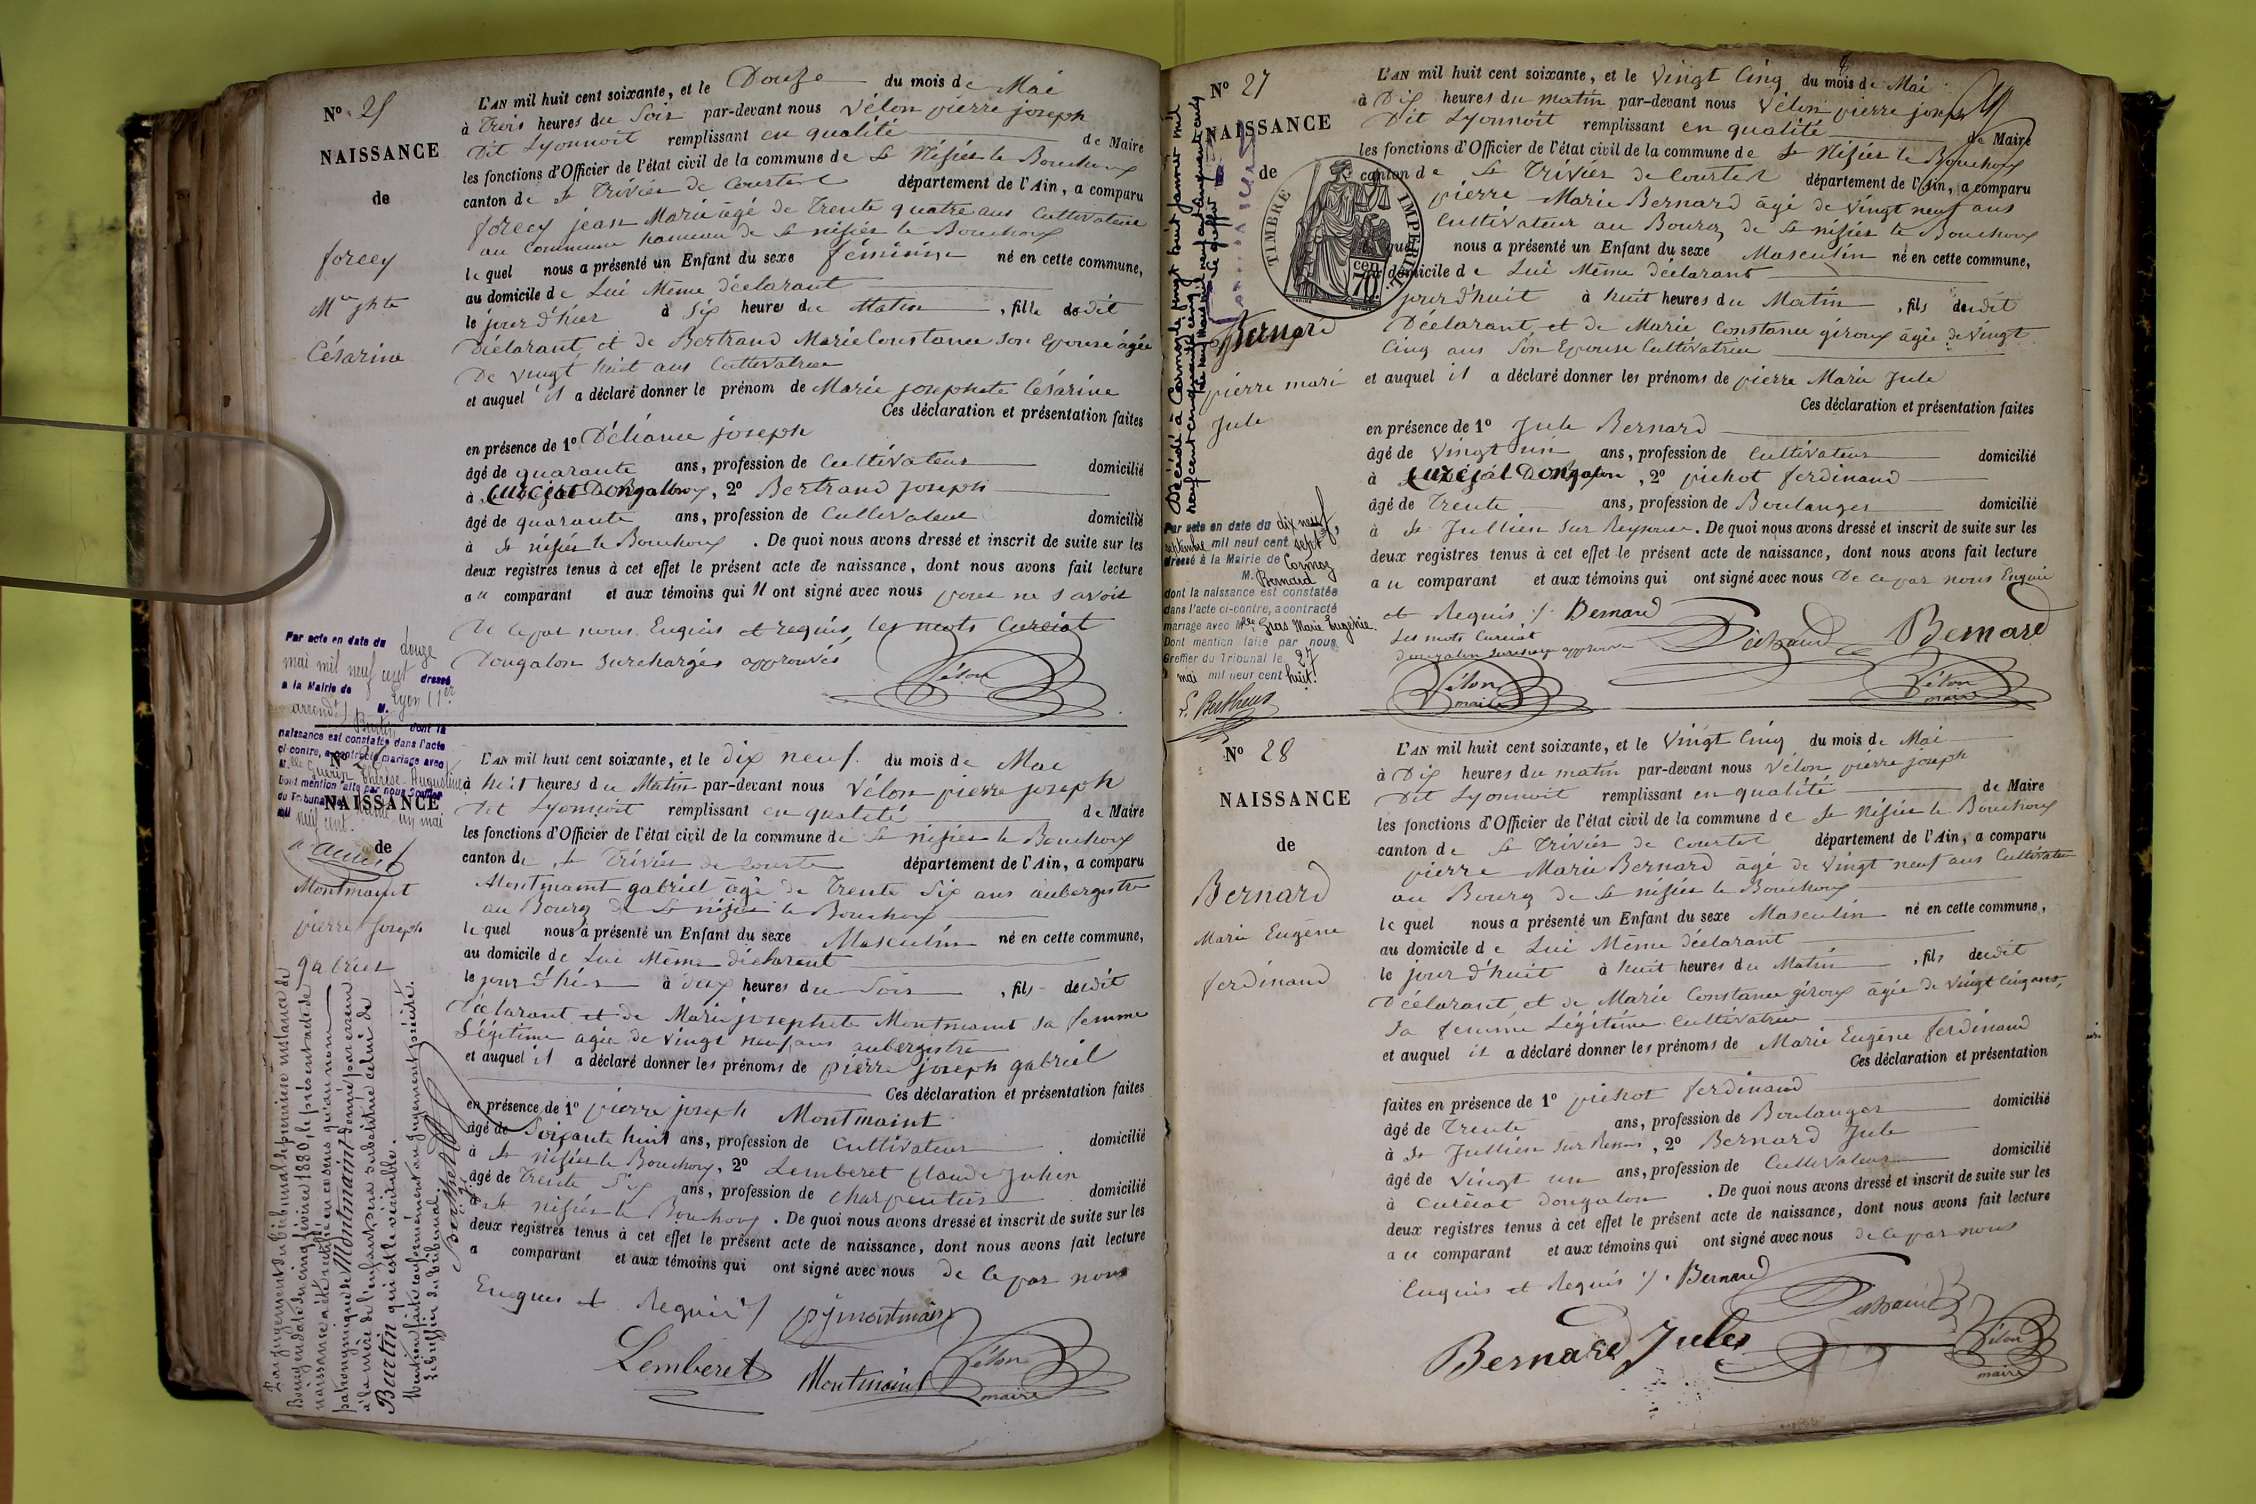 Nº 25
NAISSANCE
de
forcey
Mie jhte
Césarine
L'AN mil huit cent soixante, et le Douze du mois de Mai
à Trois heures du Soir par-devant nous Vélon pierre joseph
Dit Lyonnoit remplissant en qualité de Maire
les fonctions d'Officier de l'état civil de la commune de St Nisier le Bouchoux
canton de St Trivier de Courtes département de l'Ain, a comparu
forcey jean Marie âgé de Trente quatre ans Cultivateur
au Commune hameau de St nisier le Bouchoux
le quel nous a présenté un Enfant du sexe féminin né en cette commune,
au domicile de Lui Même déclarant
le jour d'hier à Six heures du Matin, fille dudit
Déclarant et de Bertrand Marie Constance son Epouse âgée
De vingt huit ans Cultivatrice
et auquel il a déclaré donner le prénom de Marie josephete Césarine
Ces déclaration et présentation faites
en présence de 1º Déliance joseph
âgé de quarante ans, profession de Cultivateur domicilié
à Curciat Dongalon, 2º Bertrand joseph
âgé de quarante ans, profession de Cultivateur domicilié
à St nisier le Bouchoux. De quoi nous avons dressé et inscrit de suite sur les
deux registres tenus à cet effet le présent acte de naissance, dont nous avons fait lecture
au comparant et aux témoins qui n ont signé avec nous pour ne savoir
de ce par nous Enquis et requis, les mots Curciat
Dongalon surchargés approuvés
Vélon
Par acte en date du douze
mai mil neuf cent dressé
a la Mairie de Lyon (1er
arrondt) M.
Burtin dont la
naissance est constatée dans l'acte
ci contre, a contracté mariage avec
Mlle Guerin Thérèse Augustine
Dont mention faite par nous Greffier
du Tribunal le trente un mai
mil neuf cent.
Nº 26
NAISSANCE
de
Montmaint
pierre joseph
gabriel
L'AN mil huit cent soixante, et le dix neuf du mois de Mai
à huit heures du Matin par-devant nous Vélon pierre joseph
Dit Lyonnoit remplissant en qualité de Maire
les fonctions d'Officier de l'état civil de la commune de St nisier le Bouchoux
canton de St Trivier de Courtes département de l'Ain, a comparu
Montmaint gabriel âgé de Trente Six ans aubergiste
au Bourg de St nisier le Bouchoux
le quel nous a présenté un Enfant du sexe Masculin né en cette commune,
au domicile de Lui Même déclarant
le jour d'hier à deux heures du Soir, fils dudit
Déclarant et de Marie josephete Montmaint sa femme
Légitime âgée de vingt neuf ans aubergiste
et auquel il a déclaré donner les prénoms de pierre joseph gabriel
Ces déclaration et présentation faites
en présence de 1º pierre joseph Montmaint
âgé de Soixante huit ans, profession de Cultivateur domicilié
à St nisier le Bouchoux, 2º Lemberet Claude Julien
âgé de Trente Six ans, profession de Charpentier domicilié
à St nisier le Bouchoux. De quoi nous avons dressé et inscrit de suite sur les
deux registres tenus à cet effet le présent acte de naissance, dont nous avons fait lecture
a comparant et aux témoins qui ont signé avec nous de ce par nous
Enquis et Requis /
pj montmain
Lemberet
Montmaint
Vélon
maire
Par jugement du tribunal de première instance de
Bourg en date du cinq février 1880, le présent acte de
naissance a été rectifié en ce sens qu'au nom
patronymique de Montmaint donné par erreur
à la mère de l'enfant sera substitué celui de
Burtin qui est le véritable.
Mention faite conformément au jugement précité.
Le Greffier du tribunal.
Nº 27
NAISSANCE
de
Bernard
pierre mari
Jule
TIMBRE IMPERIAL
70 cen
Décédé à Cormoz le vingt huit janvier mil
neuf cent cinquante cinq
Par acte en date du dix neuf,
septembre mil neuf cent sept
dressé à la Mairie de Cormoz
M. Bernard
dont la naissance est constatée
dans l'acte ci-contre, a contracté
mariage avec Mlle Gras Marie Eugénie
Dont mention faite par nous
Greffier du Tribunal le 27
mai mil neuf cent huit.
L. Bertheus
L'AN mil huit cent soixante, et le vingt Cinq du mois de Mai
à Dix heures du matin par-devant nous Vélon pierre joseph
Dit Lyonnoit remplissant en qualité de Maire
les fonctions d'Officier de l'état civil de la commune de St Nisier le Bouchoux
canton de St Trivier de Courtes département de l'Ain, a comparu
pierre Marie Bernard âgé de vingt neuf ans
Cultivateur au Bourg de St nisier le Bouchoux
le quel nous a présenté un Enfant du sexe Masculin né en cette commune,
au domicile de Lui Même déclarant
jour d'huit à huit heures du Matin, fils dudit
Déclarant et de Marie Constance giroux âgée de vingt
Cinq ans Son Epouse Cultivatrice
et auquel il a déclaré donner les prénoms de pierre Marie Jule
Ces déclaration et présentation faites
en présence de 1º Jule Bernard
âgé de vingt un ans, profession de Cultivateur domicilié
à Curciat Dongalon, 2º pichot ferdinand
âgé de Trente ans, profession de Boulanger domicilié
à St Jullien sur Reyssouze. De quoi nous avons dressé et inscrit de suite sur les
deux registres tenus à cet effet le présent acte de naissance, dont nous avons fait lecture
au comparant et aux témoins qui ont signé avec nous De ce par nous Enquis
et Requis /. Bernard
Les mots Curciat
dongalon surchargé approuvé
Bernard
Vélon
maire
Vélon
maire
Nº 28
NAISSANCE
de
Bernard
Marie Eugène
ferdinand
L'AN mil huit cent soixante, et le vingt Cinq du mois de Mai
à Dix heures du matin par-devant nous Vélon pierre joseph
Dit Lyonnoit remplissant en qualité de Maire
les fonctions d'Officier de l'état civil de la commune de St Nisier le Bouchoux
canton de St Trivier de Courtes département de l'Ain, a comparu
pierre Marie Bernard âgé de vingt neuf ans Cultivateur
au Bourg de St nisier le Bouchoux
le quel nous a présenté un Enfant du sexe Masculin né en cette commune,
au domicile de Lui Même déclarant
le jour d'huit à huit heures du Matin, fils dudit
Déclarant et de Marie Constance giroux âgée de vingt cinq ans,
sa femme Légitime Cultivatrice
et auquel il a déclaré donner les prénoms de Marie Eugène ferdinand
Ces déclaration et présentation
faites en présence de 1º pichot ferdinand
âgé de Trente ans, profession de Boulanger domicilié
à St Jullien sur Resouz, 2º Bernard Jule
âgé de vingt un ans, profession de Cultivateur domicilié
à Curciat dongalon. De quoi nous avons dressé et inscrit de suite sur les
deux registres tenus à cet effet le présent acte de naissance, dont nous avons fait lecture
au comparant et aux témoins qui ont signé avec nous de ce par nous
Enquis et Requis /. Bernard
Bernard Jules
Vélon
maire